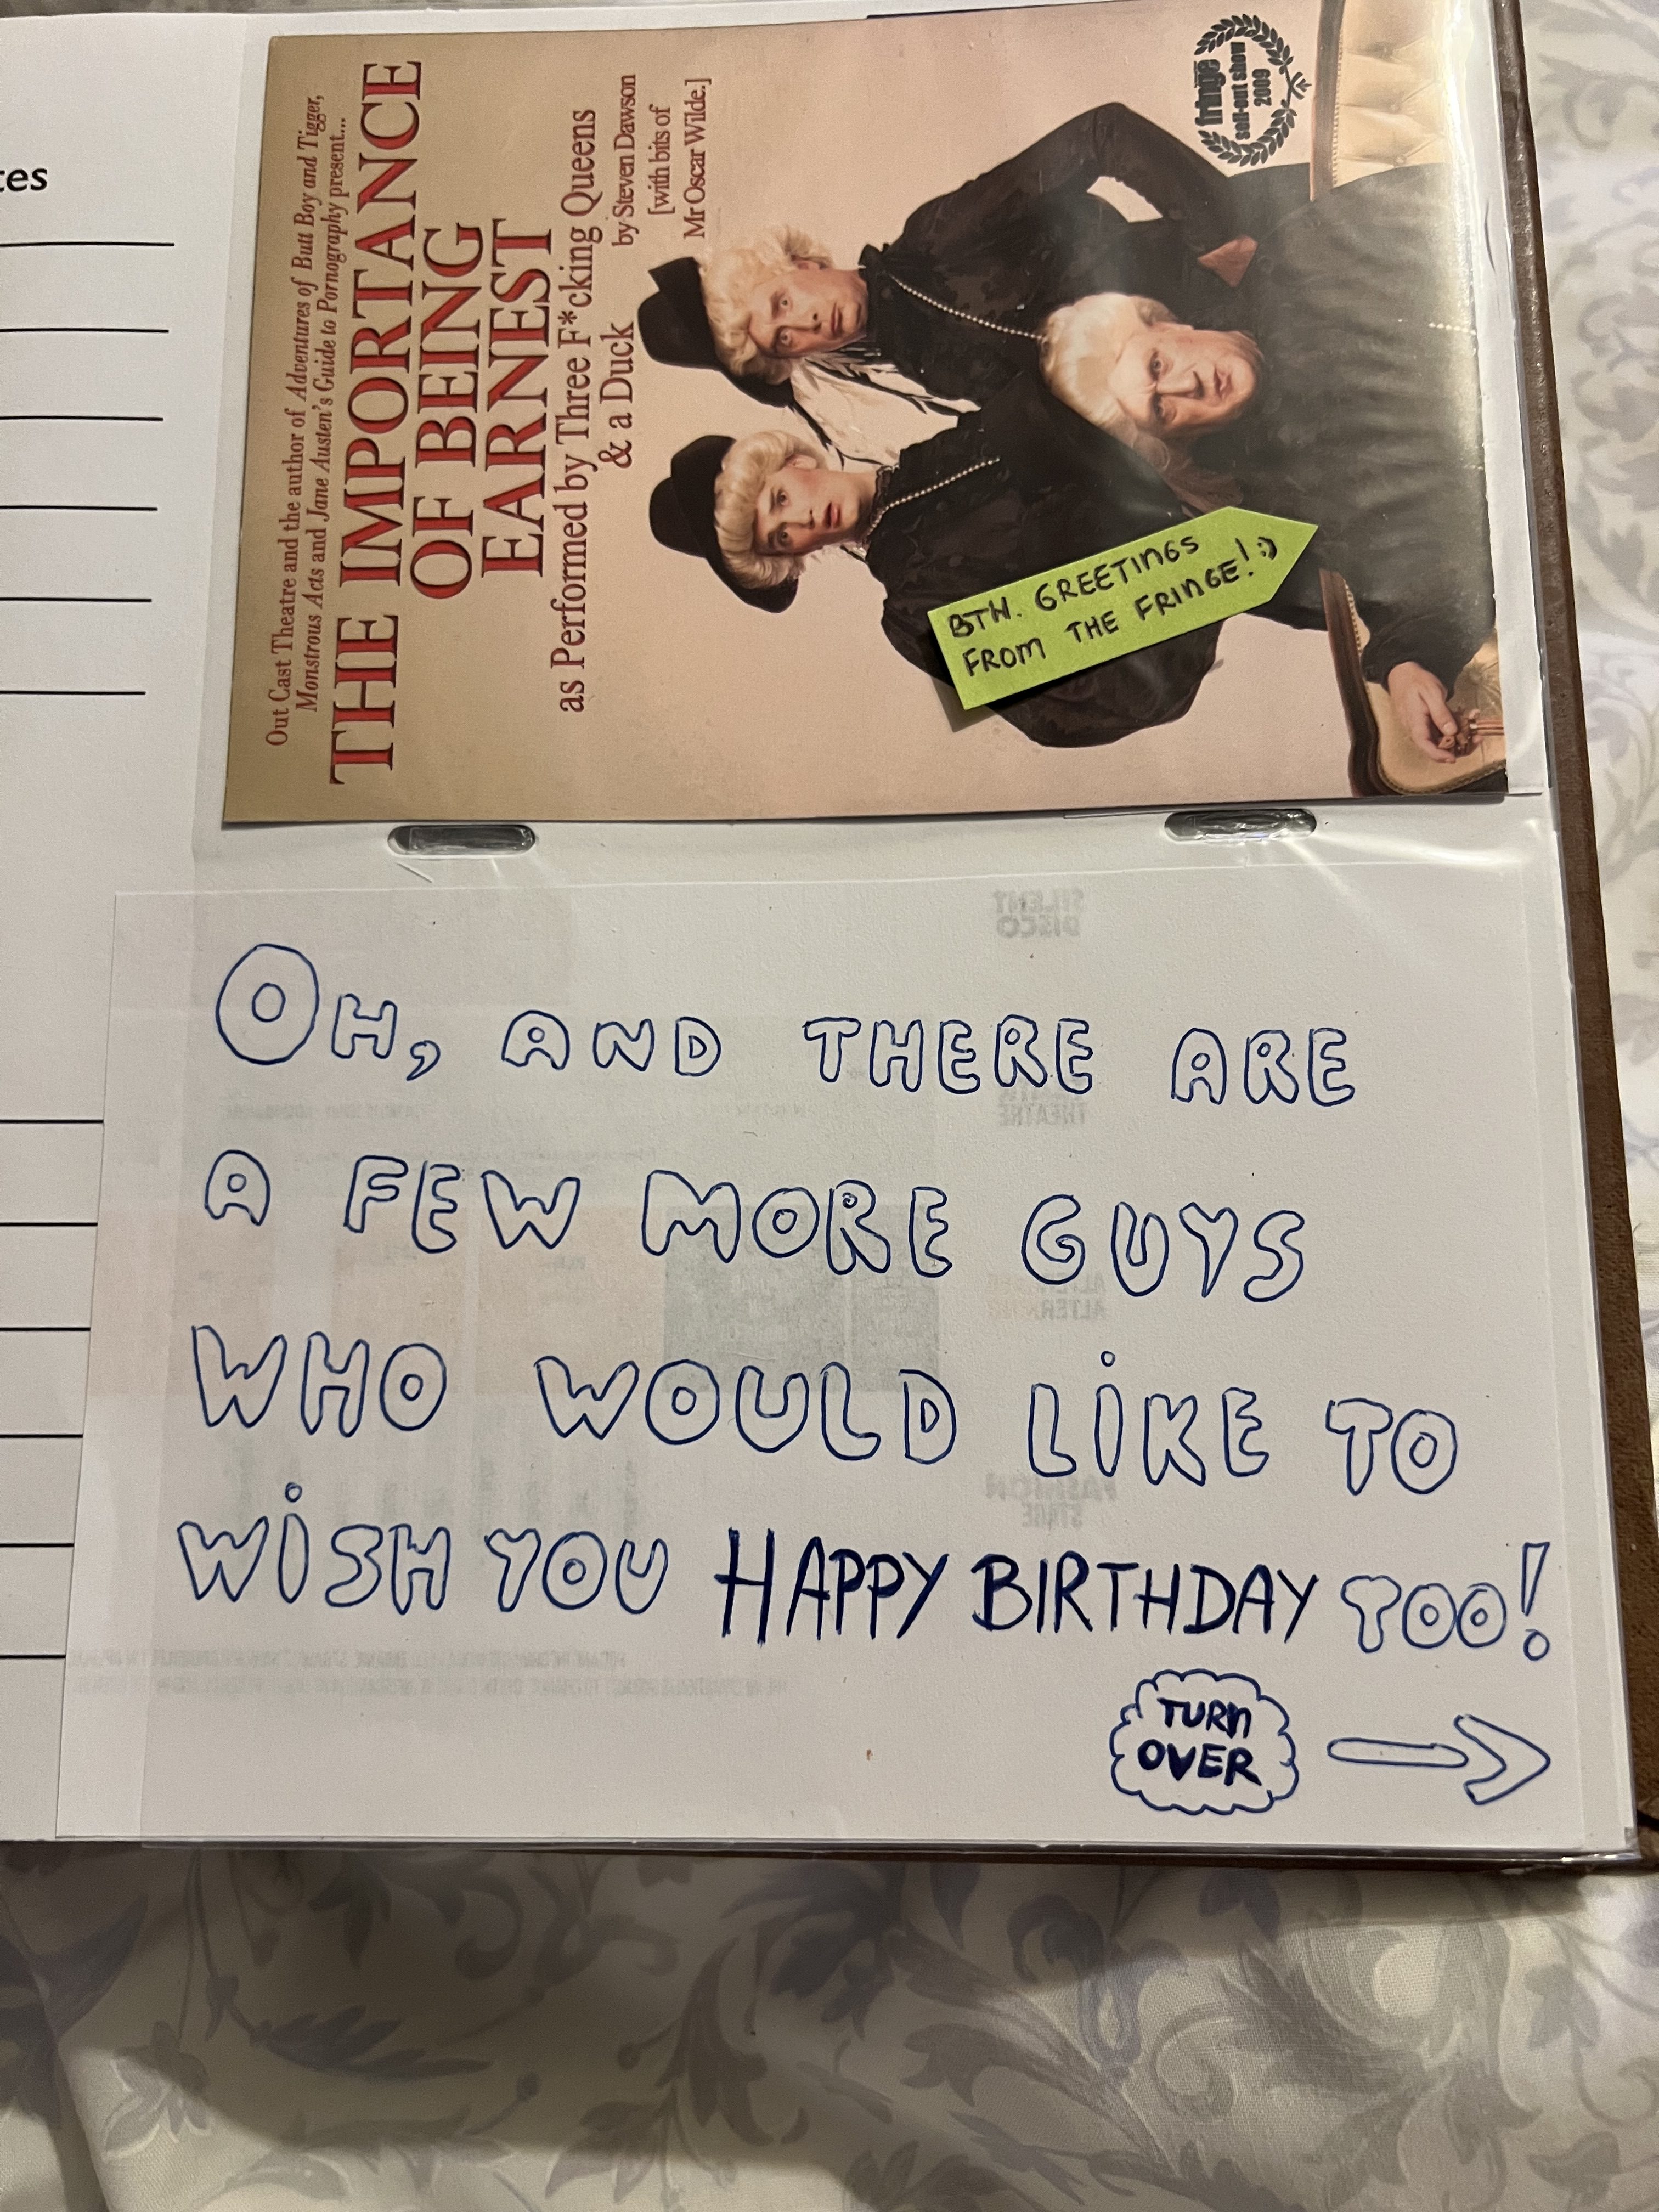 tes
Out Cast Theatre and the author of Adventures of Butt Boy and Tigger,
Monstrous Acts and Jane Austen's Guide to Pornography present...
THE IMPORTANCE
OF BEING
EARNEST
as Performed by Three F*cking Queens
& a Duck
by Steven Dawson
[with bits of
Mr Oscar Wilde.]
fringe
sell-out show
2009
BTW. GREETINGS
FROM THE FRINGE! :)
SILENT
DISCO
THEATRE
FASHION
STAGE
OH, AND THERE ARE
A FEW MORE GUYS
WHO WOULD LIKE TO
WISH YOU HAPPY BIRTHDAY TOO!
TURN
OVER